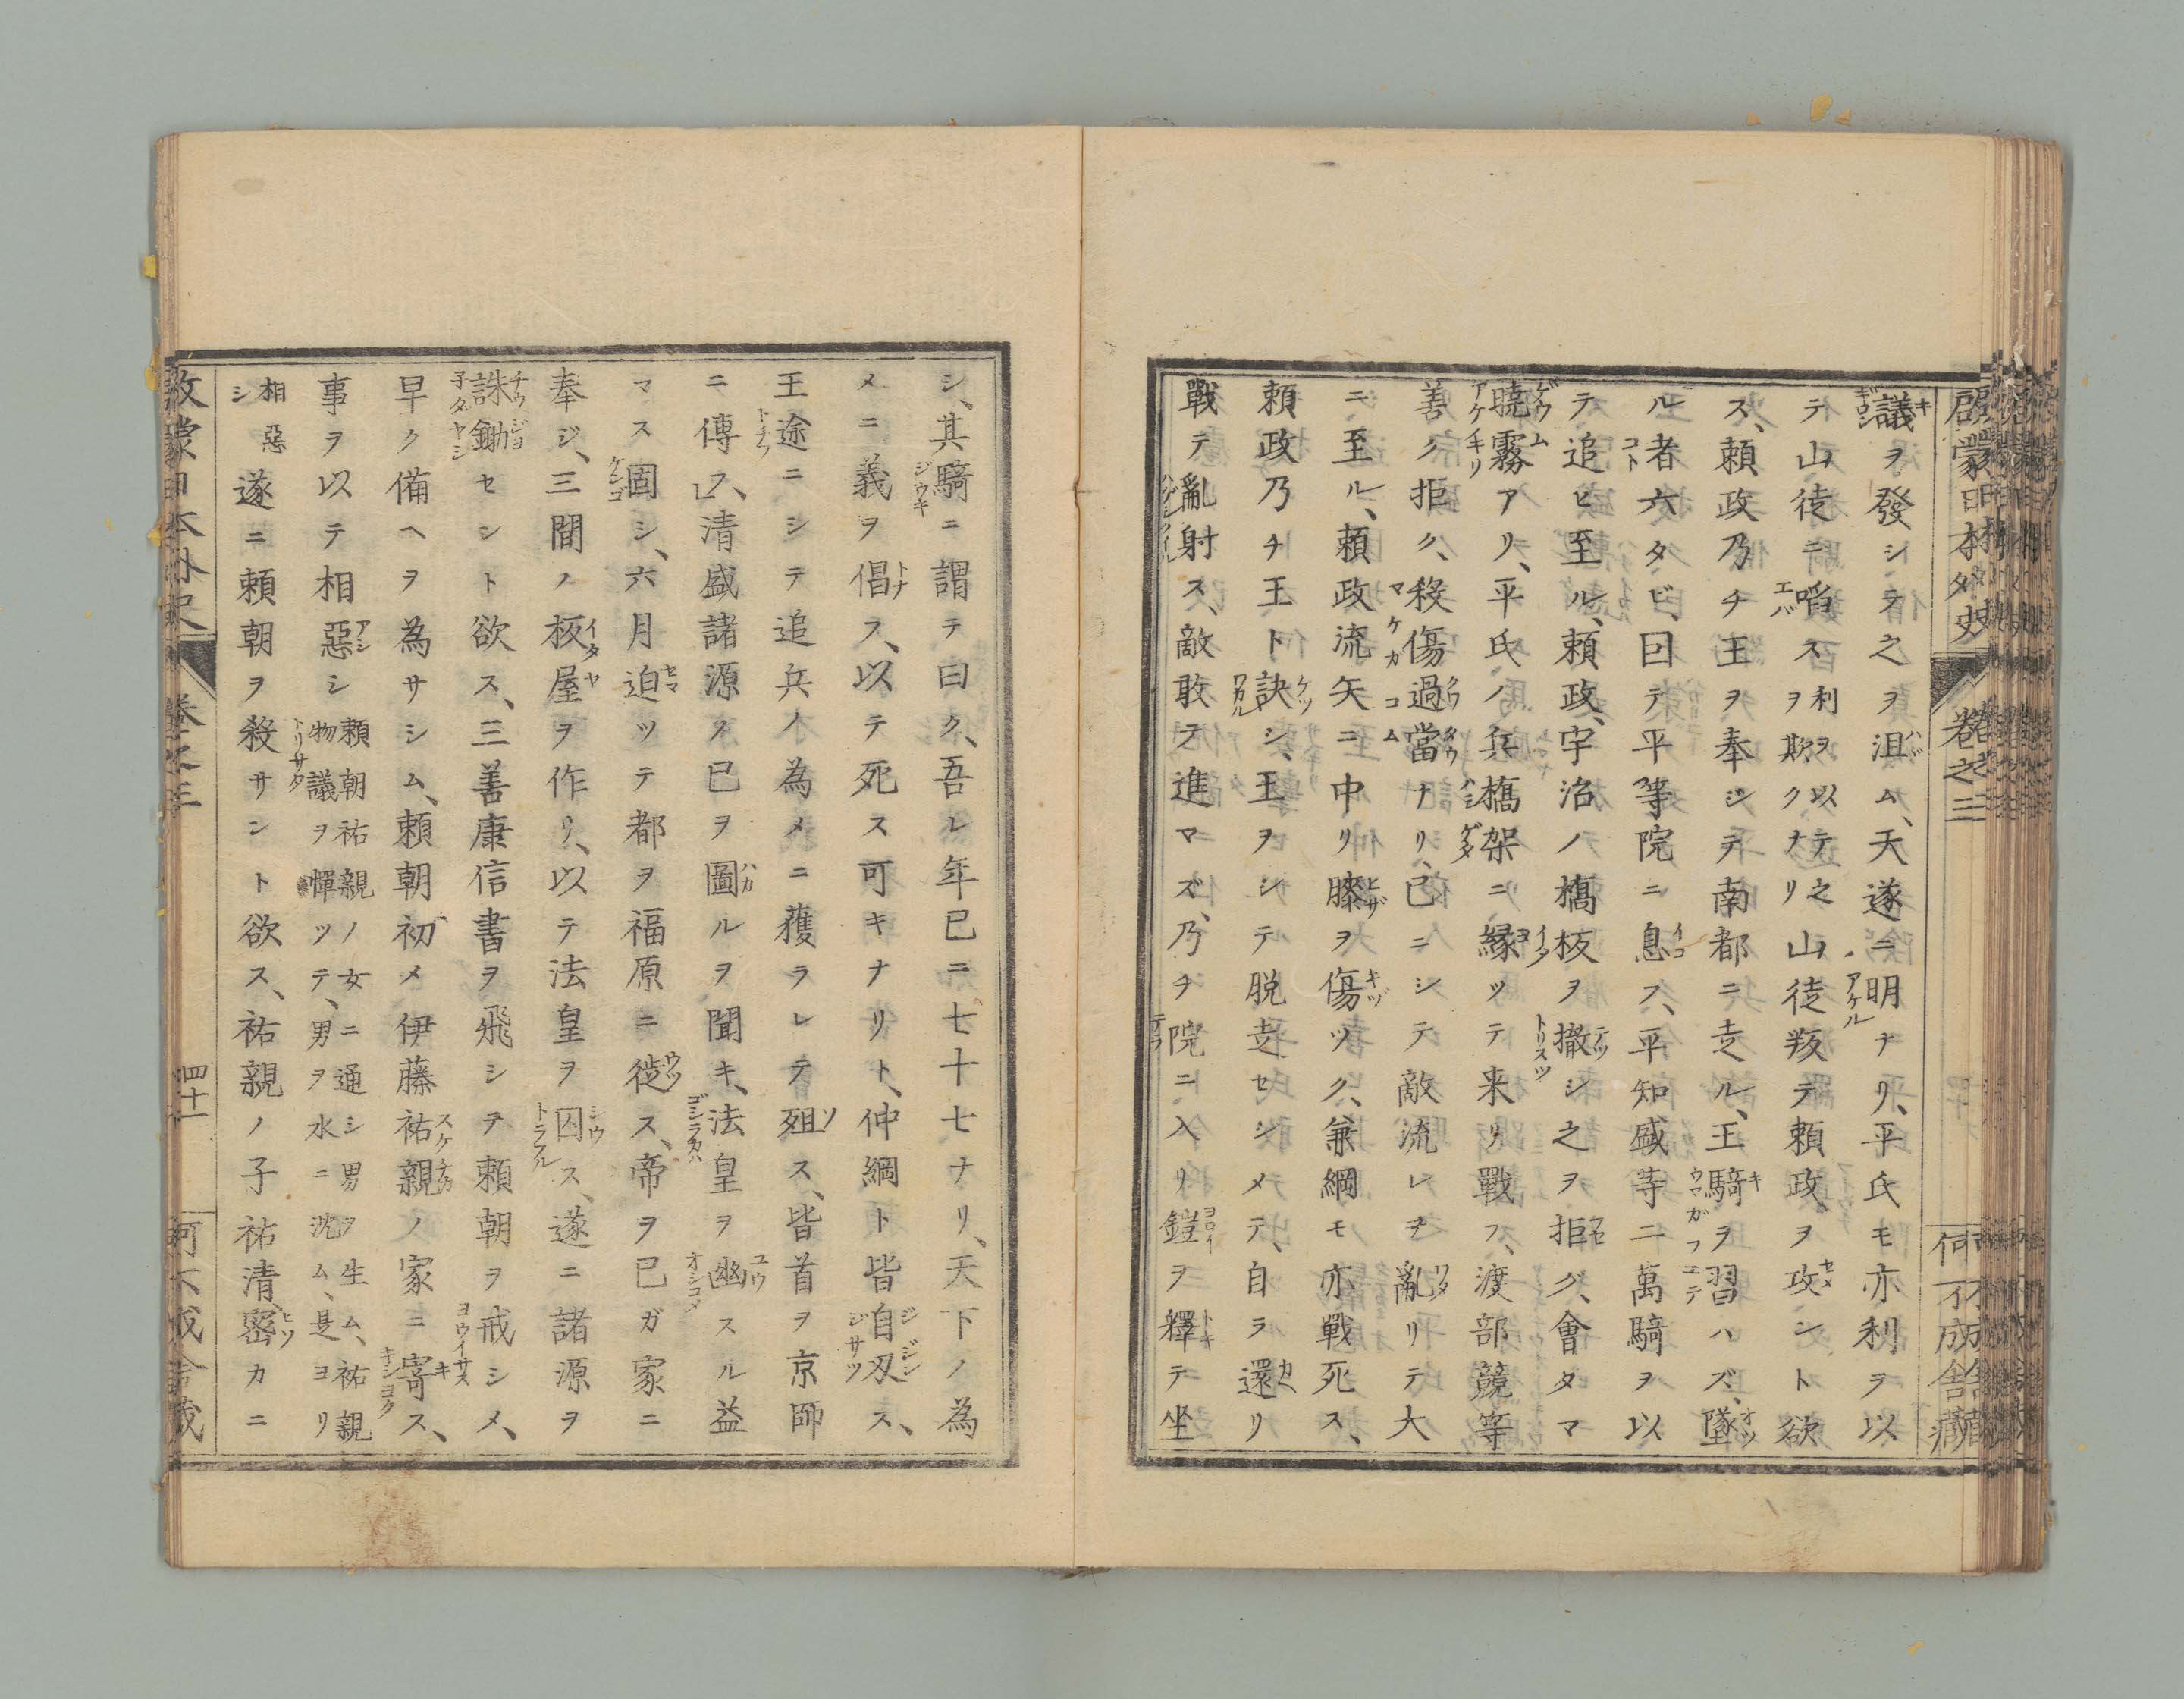 啓蒙日本外史 卷之三 何不成舎藏
議ヲ發シテ之ヲ沮ム、天遂ニ明ナリ、平氏モ亦利ヲ以
テ山徒ニ啗ス利ヲ以テ之ヲ欺クナリ山徒叛テ頼政ヲ攻メント欲
ス、頼政乃チ王ヲ奉ジテ南都ニ走ル、王騎ヲ習ハズ、墜ツ
ル者六タビ、因テ平等院ニ息フ、平知盛等二萬騎ヲ以
テ追ヒ至ル、頼政、宇治ノ橋板ヲ撤シ之ヲ拒グ、會タマ
曉霧アリ、平氏ノ兵橋架ニ縁ツテ来リ戰フ、渡部競等
善ク拒ク、殺傷過當ナリ、已ニシテ敵流レヲ亂リテ大
ニ至ル、頼政流矢ニ中リ膝ヲ傷ツク、兼綱モ亦戰死ス、
頼政乃チ王ト訣シ、王ヲシテ脱走セシメテ、自ラ還リ
戰テ亂射ス、敵敢テ進マズ、乃チ院ニ入リ鎧ヲ釋テ坐
シ、其騎ニ謂テ曰ク、吾レ年已ニ七十七ナリ、天下ノ為
メニ義ヲ倡フ、以テ死ス可キナリト、仲綱ト皆自刃ス、
王途ニシテ追兵ノ為メニ獲ラレテ殂ス、皆首ヲ京師
ニ傳フ、清盛諸源ノ已ヲ圖ルヲ聞キ、法皇ヲ幽スル益
マス固シ、六月迫ツテ都ヲ福原ニ徙ス、帝ヲ已ガ家ニ
奉ジ、三間ノ板屋ヲ作リ、以テ法皇ヲ囚ス、遂ニ諸源ヲ
誅鋤セント欲ス、三善康信書ヲ飛シテ頼朝ヲ戒シメ、
早ク備ヘヲ為サシム、頼朝初メ伊藤祐親ノ家ニ寄ス、
事ヲ以テ相惡シ頼朝祐親ノ女ニ通シ男ヲ生ム、祐親物議ヲ憚ツテ、男ヲ水ニ沈ム、是ヨリ
相惡シ遂ニ頼朝ヲ殺サント欲ス、祐親ノ子祐清、密カニ
啓蒙日本外史 卷之三 四十一 何不成舎藏